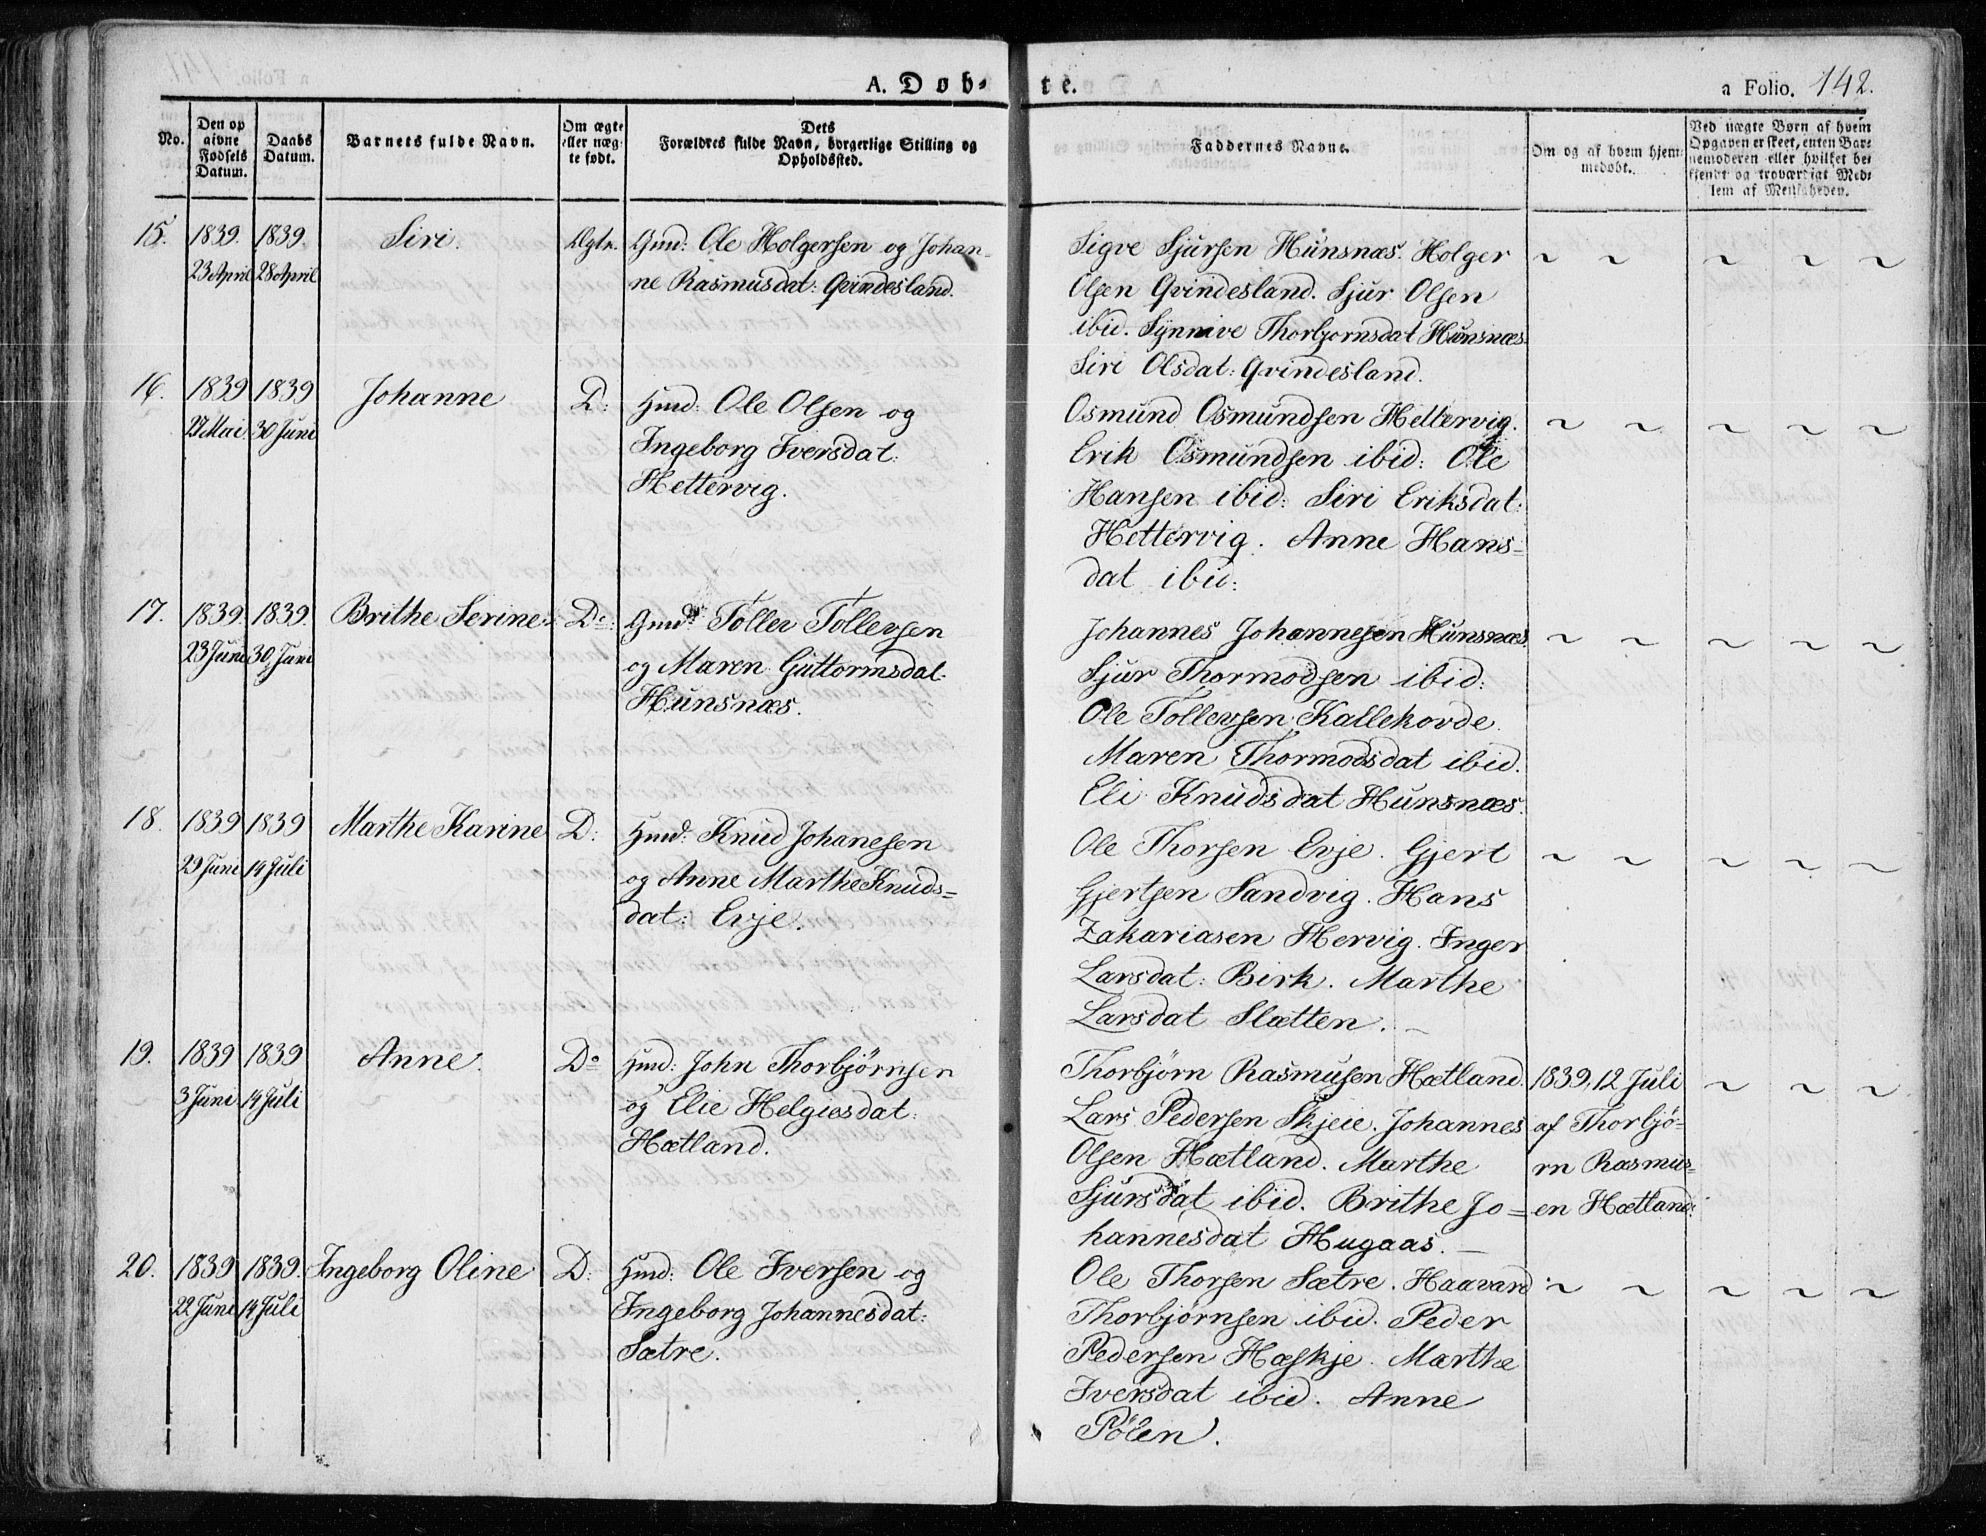 A. Døb- te. a Folio. 142.
No. Den op givne Fødsels Datum. Daabs Datum. Barnets fulde Navn. Om ægte eller uæg- te født. Dets Forældres fulde Navn, borgerlige Stilling og Opholdssted. Faddernes Navne. Om og af hvem hjem- medøbt. Ved uægte Børn af hvem Opgaven er skeet, enten Bar- nemoderen eller hvilket be- kjendt og troværdigt Med- lem af Menigheden.
15. 1839. 1839. Siri. Ægte. Gmd: Ole Holgersen og Johan- Sigve Sjursen Hunsnæs. Holger ~ ~ ~ ~ ~
23 April 28 April ne Rasmusdat: Qvindesland. Olsen Qvindesland. Sjur Olsen
ibid. Synnive Thorbjornsdat Hunsnæs.
Siri Olsdat: Qvindesland.
16. 1839 1839 Johanne D: Hmd: Ole Olsen og Osmund Osmundsen Hettervig. ~ ~ ~ ~ ~
27 Mai 30 Juni Ingeborg Iversdat: Erik Osmundsen ibid: Ole
Hettervig. Hansen ibid: Siri Eriksdat:
Hettervig. Anne Hans-
dat ibid:
17. 1839. 1839. Brithe Serine. Do: Gmd: Tollev Tollevsen Johannes Johannesen Hunsnæs. ~ ~ ~ ~ ~
23 Juni 30 Juni og Maren Guttormsdat. Sjur Thormodsen ibid:
Hunsnæs. Ole Tollevsen Kallekovde.
Maren Thormodsdat ibid.
Eli Knudsdat Hunsnæs.
18. 1839 1839 Marthe Karine D: Hmd: Knud Johanesen Ole Thorsen Evje. Gjert ~ ~ ~ ~ ~
29 Juni 14 Juli og Anne Marthe Knuds= Gjertsen Sandvig. Hans
dat: Evje. Zakariasen Hervig. Inger
Larsdat: Birk. Marthe
Larsdat Slætten.
19. 1839 1839 Anne. Do Hmd: John Thorbjørnsen Thorbjørn Rasmusen Hætland. 1839, 12 Juli ~ ~ ~
3 Juni 14 Juli og Elie Helgiesdat: Lars Pedersen Skjeie. Johannes af Thorbjø-
Hætland. Olsen Hætland. Marthe rn Rasmus=
Sjursdat ibid. Brithe Jo= en Hætland:
hannesdat Hugaas.
20. 1839 1839. Ingeborg Oline D: Hmd: Ole Iversen og Ole Thorsen Sætre. Haavard ~ ~ ~ ~ ~
22 Juni 14 Juli Ingeborg Johannesdat: Thorbjørnsen ibid. Peder
Sætre. Pedersen Hæskje. Marthe
Iversdat ibid. Anne
Pølen.